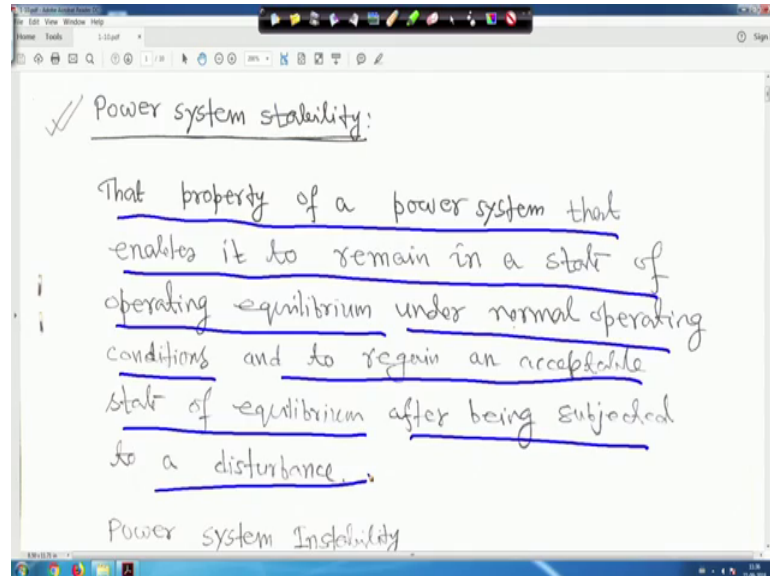 1-10.pdf - Adobe Acrobat Reader DC
File Edit View Window Help
Home Tools 1-10.pdf × Sign
1 / 10
Power system stability:
That property of a power system that
enables it to remain in a state of
operating equilibrium under normal operating
conditions and to regain an acceptable
state of equilibrium after being subjected
to a disturbance.
Power system Instability
8.50 x 11.71 in
11:36